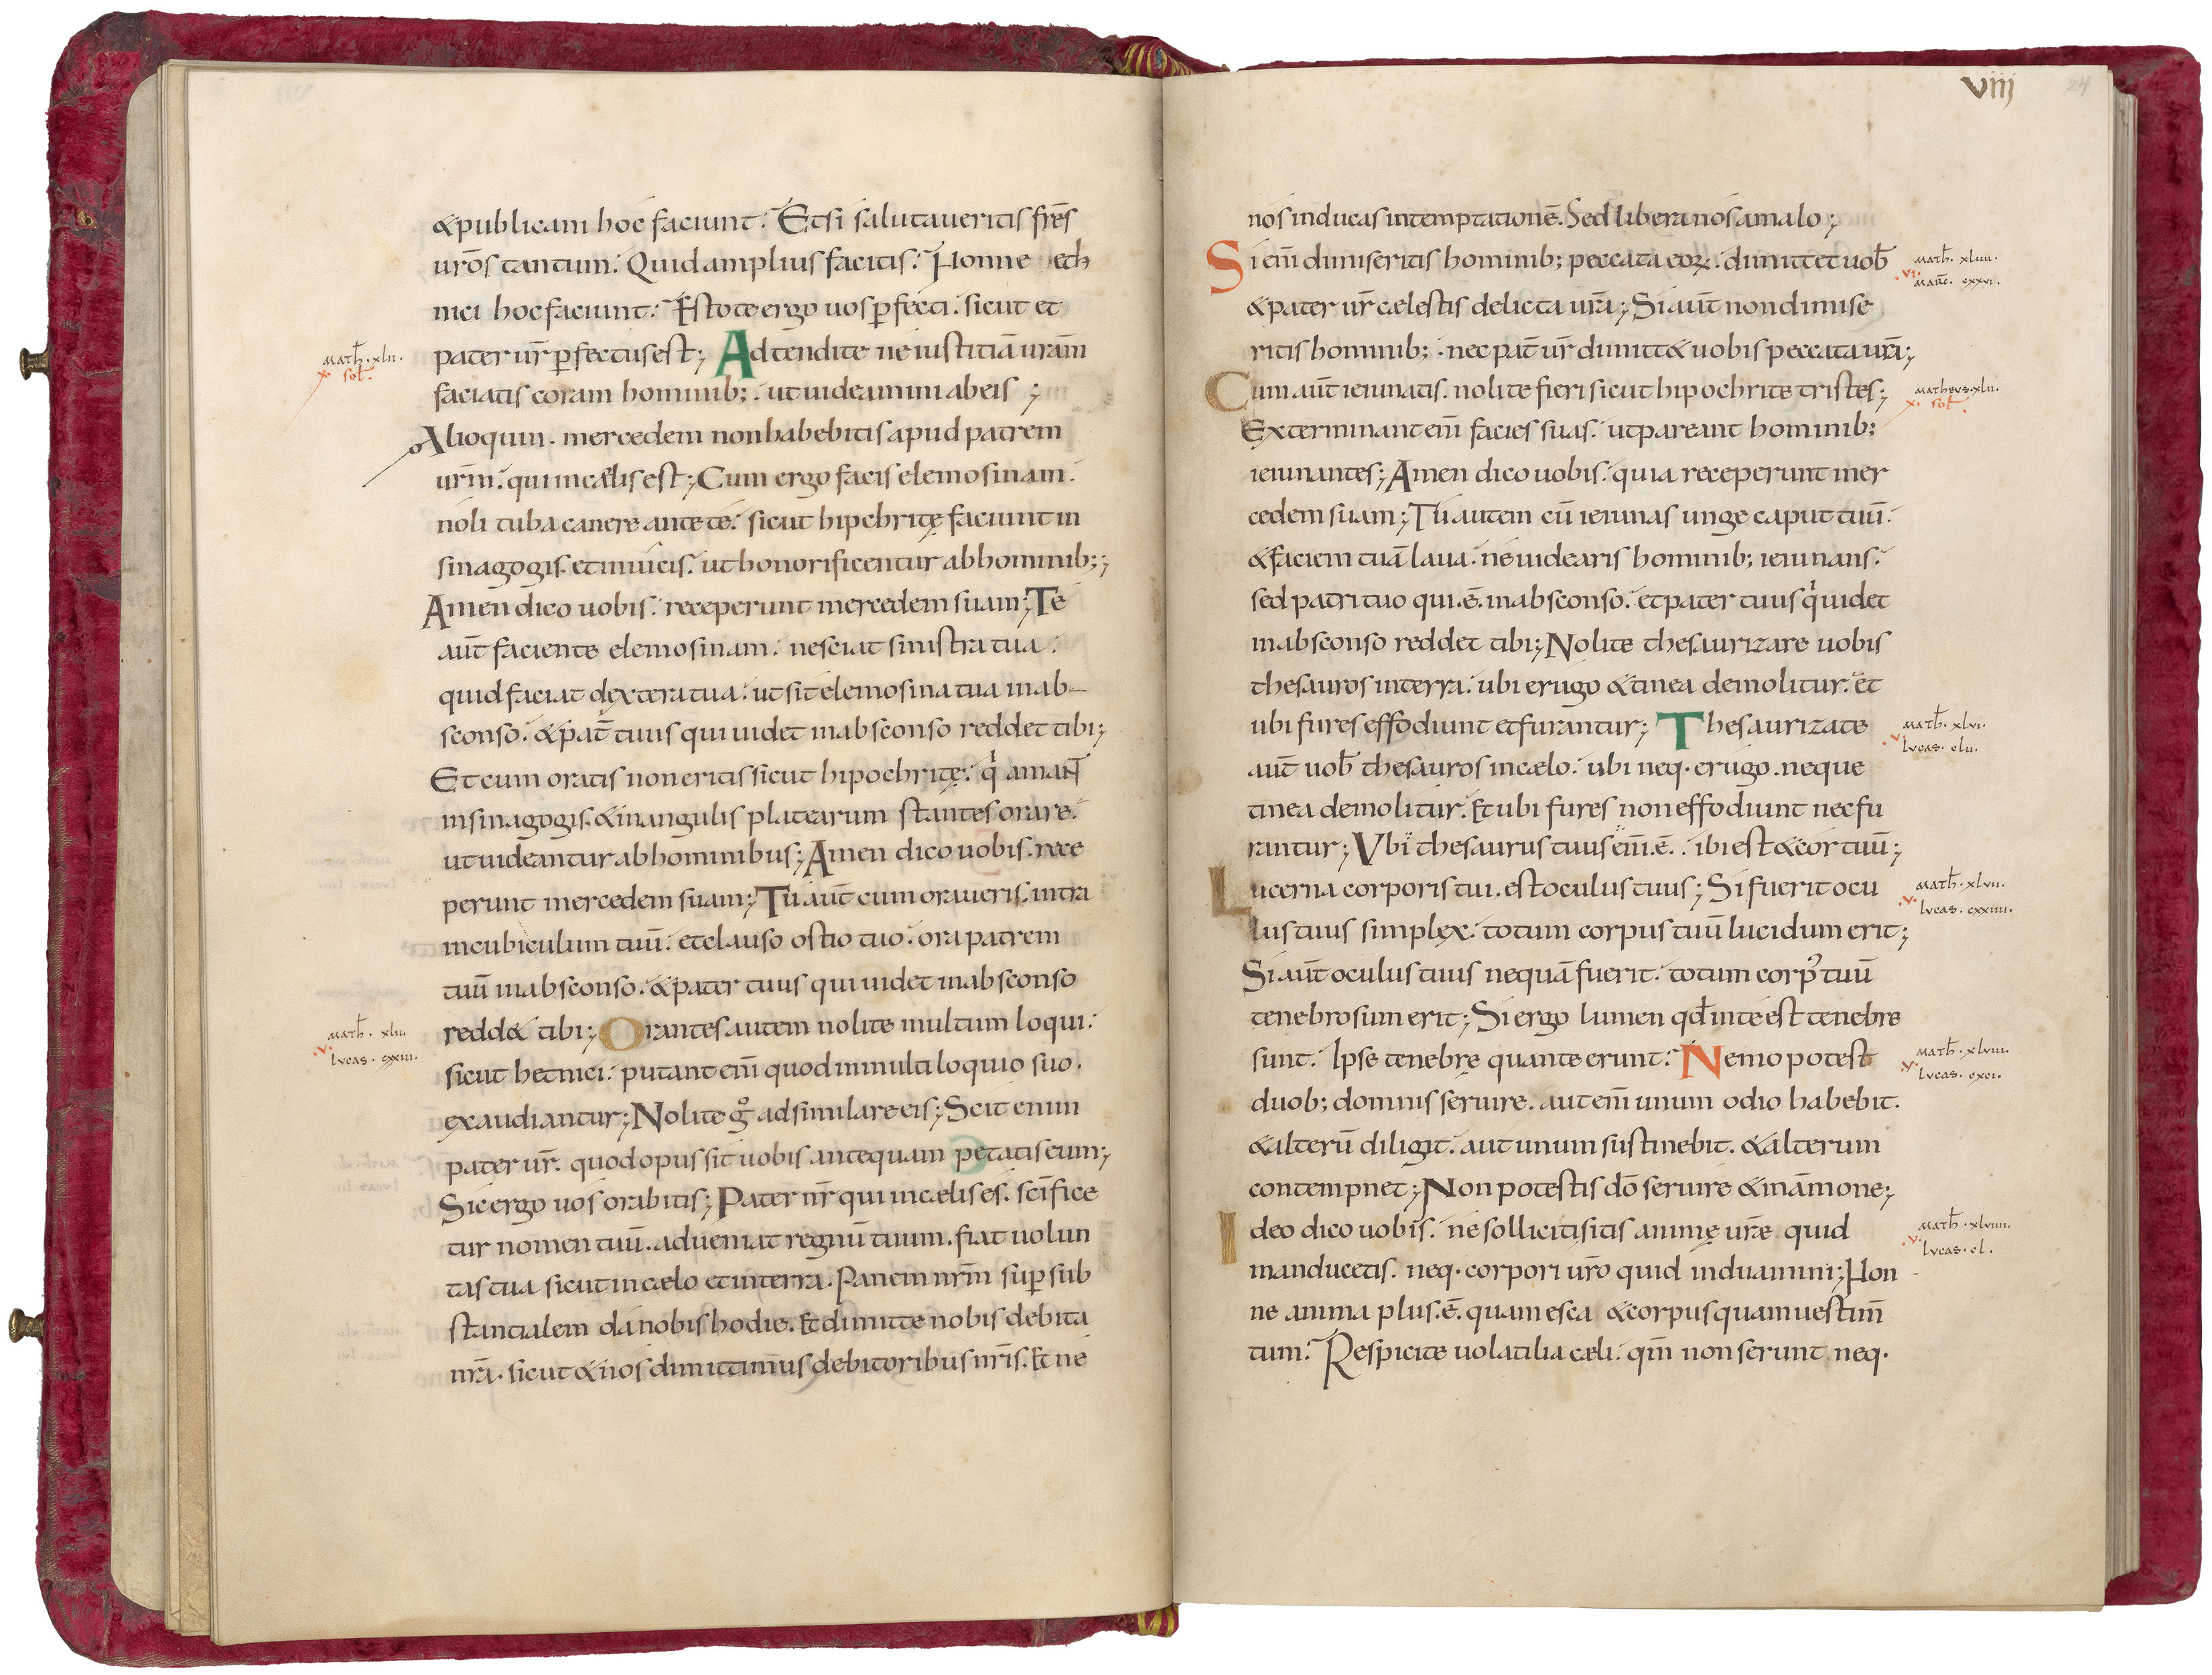 &publicani hoc faciunt. Etsi salutaueritis fr̄es
ur̄os tantum. Quid amplius facitis. Nonne eth
nici hoc faciunt. Estote ergo uos ꝑfecti. sicut et
math̄. xlii.
x. sol̄.
pater ur̄ ꝑfectus est; Adtendite ne iustitiā urām
faciatis coram hominib;. ut uideamini ab eis;
Alioquin. mercedem non habebitis apud patrem
ur̄m. qui in cælis est; Cum ergo facis elemosinam.
noli tuba canere ante te. sicut hipchritę faciunt in
sinagogis. et in uicis. ut honorificentur ab hominib;;
Amen dico uobis. receperunt mercedem suam; Te
aut̄ faciente elemosinam. nesciat sinistra tua.
quid faciat dextera tua. ut sit elemosina tua in ab-
sconso. & pat̄ tuus qui uidet in absconso reddet tibi;
Et cum oratis non eritis sicut hipochritę. qͥ amant
in sinagogis. & in angulis platearum stantes orare.
ut uideantur ab hominibus; Amen dico uobis. rece
perunt mercedem suam; Tu aut̄ cum oraueris. intra
in cubiculum tuū. et clauso ostio tuo. ora patrem
tuū in absconso. & pater tuus qui uidet in absconso
math̄. xliii.
v. lvcas. cxxiii.
redd& tibi; Orantes autem nolite multum loqui.
sicut hetnici. putant eni̅ quod in multiloquio suo.
exaudiantur; Nolite gͦ adsimulare eis; Scit enim
pater ur̄. quod opus sit uobis antequam petatis eum;
Sic ergo uos orabitis; Pater nr̄ qui in cælis es. sc̄ifice
tur nomen tuū. adueniat regnū tuum. fiat uolun
tas tua sicut in cælo et in terra. Panem nr̄m suꝑ sub
stantialem da nobis hodie. Et dimitte nobis debita
nr̄a. sicut & nos dimittimus debitoribus nr̄is. Et ne
viij
24
nos inducas in temptationē. Sed libera nos a malo;
Si eni̅ dimiseritis hominib; peccata eoꝝ. dimittet uob̄
math̄. xliiii.
vi. marc̄. cxxvi.
& pater ur̄ cælestis delicta urā; Si aut̄ non dimise
ritis hominib;. nec pat̄ ur̄ dimitt& uobis peccata urā;
Cum aut̄ ieiunatis. nolite fieri sicut hipochrite tristes;
matheus. xlii.
x. sol̄.
Exterminant eni̅ facies suas. ut pareant hominib;
ieiunantes; Amen dico uobis. quia receperunt mer
cedem suam; Tu autem cū ieiunas unge caput tuū.
& faciem tuā laua. ne uidearis hominib; ieiunans.
sed patri tuo qui. ē. in absconso. et pater tuus qͥ uidet
in absconso reddet tibi; Nolite thesaurizare uobis
thesauros in terra. ubi erugo & tinea demolitur. et
ubi fures effodiunt et furantur; Thesaurizate
math̄. xlvi.
v. lvcas. clii.
aut̄ uob̄ thesauros in cælo. ubi neq. erugo. neque
tinea demolitur. Et ubi fures non effodiunt nec fu
rantur; Vbi thesaurus tuus eni̅. ē.. ibi est & cor tuū;
Lucerna corporis tui. est oculus tuus; Si fuerit ocu
math̄. xlvii.
v. lvcas. cxxiiii.
lus tuus simplex. totum corpus tuū lucidum erit;
Si aut̄ oculus tuus nequā fuerit. totum corp᾽ tuū
tenebrosum erit; Si ergo lumen qd̄ in te est tenebre
sunt. Ipse tenebrę quante erunt. Nemo potest
math̄. xlviii.
v. lvcas. cxci.
duob; dominis seruire. aut eni̅ unum odio habebit.
& alterū diligit. aut unum sustinebit. & alterum
contempnet; Non potestis dō seruire & māmone;
Ideo dico uobis. ne solliciti sitis animę urē quid
math̄. xlviiii.
v. lvcas. cl.
manducetis. neq. corpori ur̄o quid induamini; Non
ne anima plus. ē. quam esca & corpus quam uestim̄
tum. Respicite uolatilia cæli. qm̄ non serunt. neq.